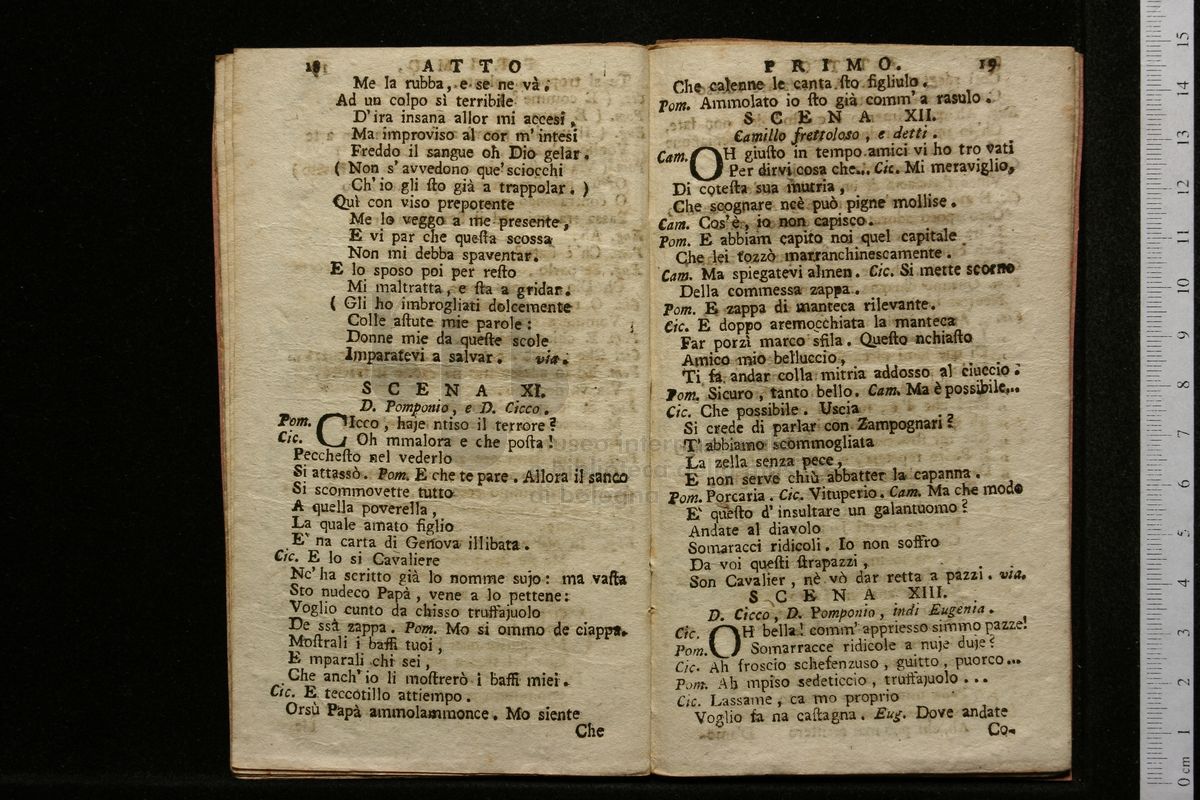 18 ATTO
Me la rubba, e se ne và.
Ad un colpo sì terribile
D'ira insana allor mi accesi,
Ma improviso al cor m'intesi
Freddo il sangue oh Dio gelar.
( Non s'avvedono que' sciocchi
Ch'io gli sto già a trappolar. )
Quì con viso prepotente
Me lo veggo a me presente,
E vi par che questa scossa
Non mi debba spaventar.
E lo sposo poi per resto
Mi maltratta, e sta a gridar.
( Gli ho imbrogliati dolcemente
Colle astute mie parole:
Donne mie da queste scole
Imparatevi a salvar. via.
SCENA XI.
D. Pomponio, e D. Cicco.
Pom. CIcco, haje ntiso il terrore?
Cic. Oh mmalora e che posta!
Pecchesto nel vederlo
Si attassò. Pom. E che te pare. Allora il sanco
Si scommovette tutto
A quella poverella,
La quale amato figlio
E' na carta di Genova illibata.
Cic. E lo si Cavaliere
Nc'ha scritto già lo nomme sujo: ma vasta
Sto nudeco Papà, vene a lo pettene:
Voglio cunto da chisso truffajuolo
De ssa zappa. Pom. Mo si ommo de ciappa.
Mostrali i baffi tuoi,
E mparali chi sei,
Che anch'io li mostrerò i baffi miei.
Cic. E teccotillo attiempo.
Orsù Papà ammolammonce. Mo siente
Che
PRIMO. 19
Che calenne le canta sto figliulo.
Pom. Ammolato io sto già comm'a rasulo.
SCENA XII.
Camillo frettoloso, e detti.
Cam. OH giusto in tempo amici vi ho trovati
Per dirvi cosa che... Cic. Mi meraviglio,
Di cotesta sua mutria,
Che scognare nce può pigne mollise.
Cam. Cos'è, io non capisco.
Pom. E abbiam capito noi quel capitale
Che lei tozzò marranchinescamente.
Cam. Ma spiegatevi almen. Cic. Si mette scorno
Della commessa zappa.
Pom. E zappa di manteca rilevante.
Cic. E doppo aremocchiata la manteca
Far porzì marco sfila. Questo nchiasto
Amico mio belluccio,
Ti fa andar colla mitria addosso al ciuccio.
Pom. Sicuro, tanto bello. Cam. Ma è possibile...
Cic. Che possibile. Uscia
Si crede di parlar con Zampognari?
T'abbiamo scommogliata
La zella senza pece,
E non serve chiù abbatter la capanna.
Pom. Porcaria. Cic. Vituperio. Cam. Ma che modo
E' questo d'insultare un galantuomo?
Andate al diavolo
Somaracci ridicoli. Io non soffro
Da voi questi strapazzi,
Son Cavalier, nè vò dar retta a pazzi. via.
SCENA XIII.
D. Cicco, D. Pomponio, indi Eugenia.
Cic. OH bella! comm'appriesso simmo pazze!
Pom. Somarracce ridicole a nuje duje?
Cic. Ah froscio schefenzuso, guitto, puorco...
Pom. Ah mpiso sedeticcio, truffajuolo...
Cic. Lassame, ca mo proprio
Voglio fa na castagna. Eug. Dove andate
Co-